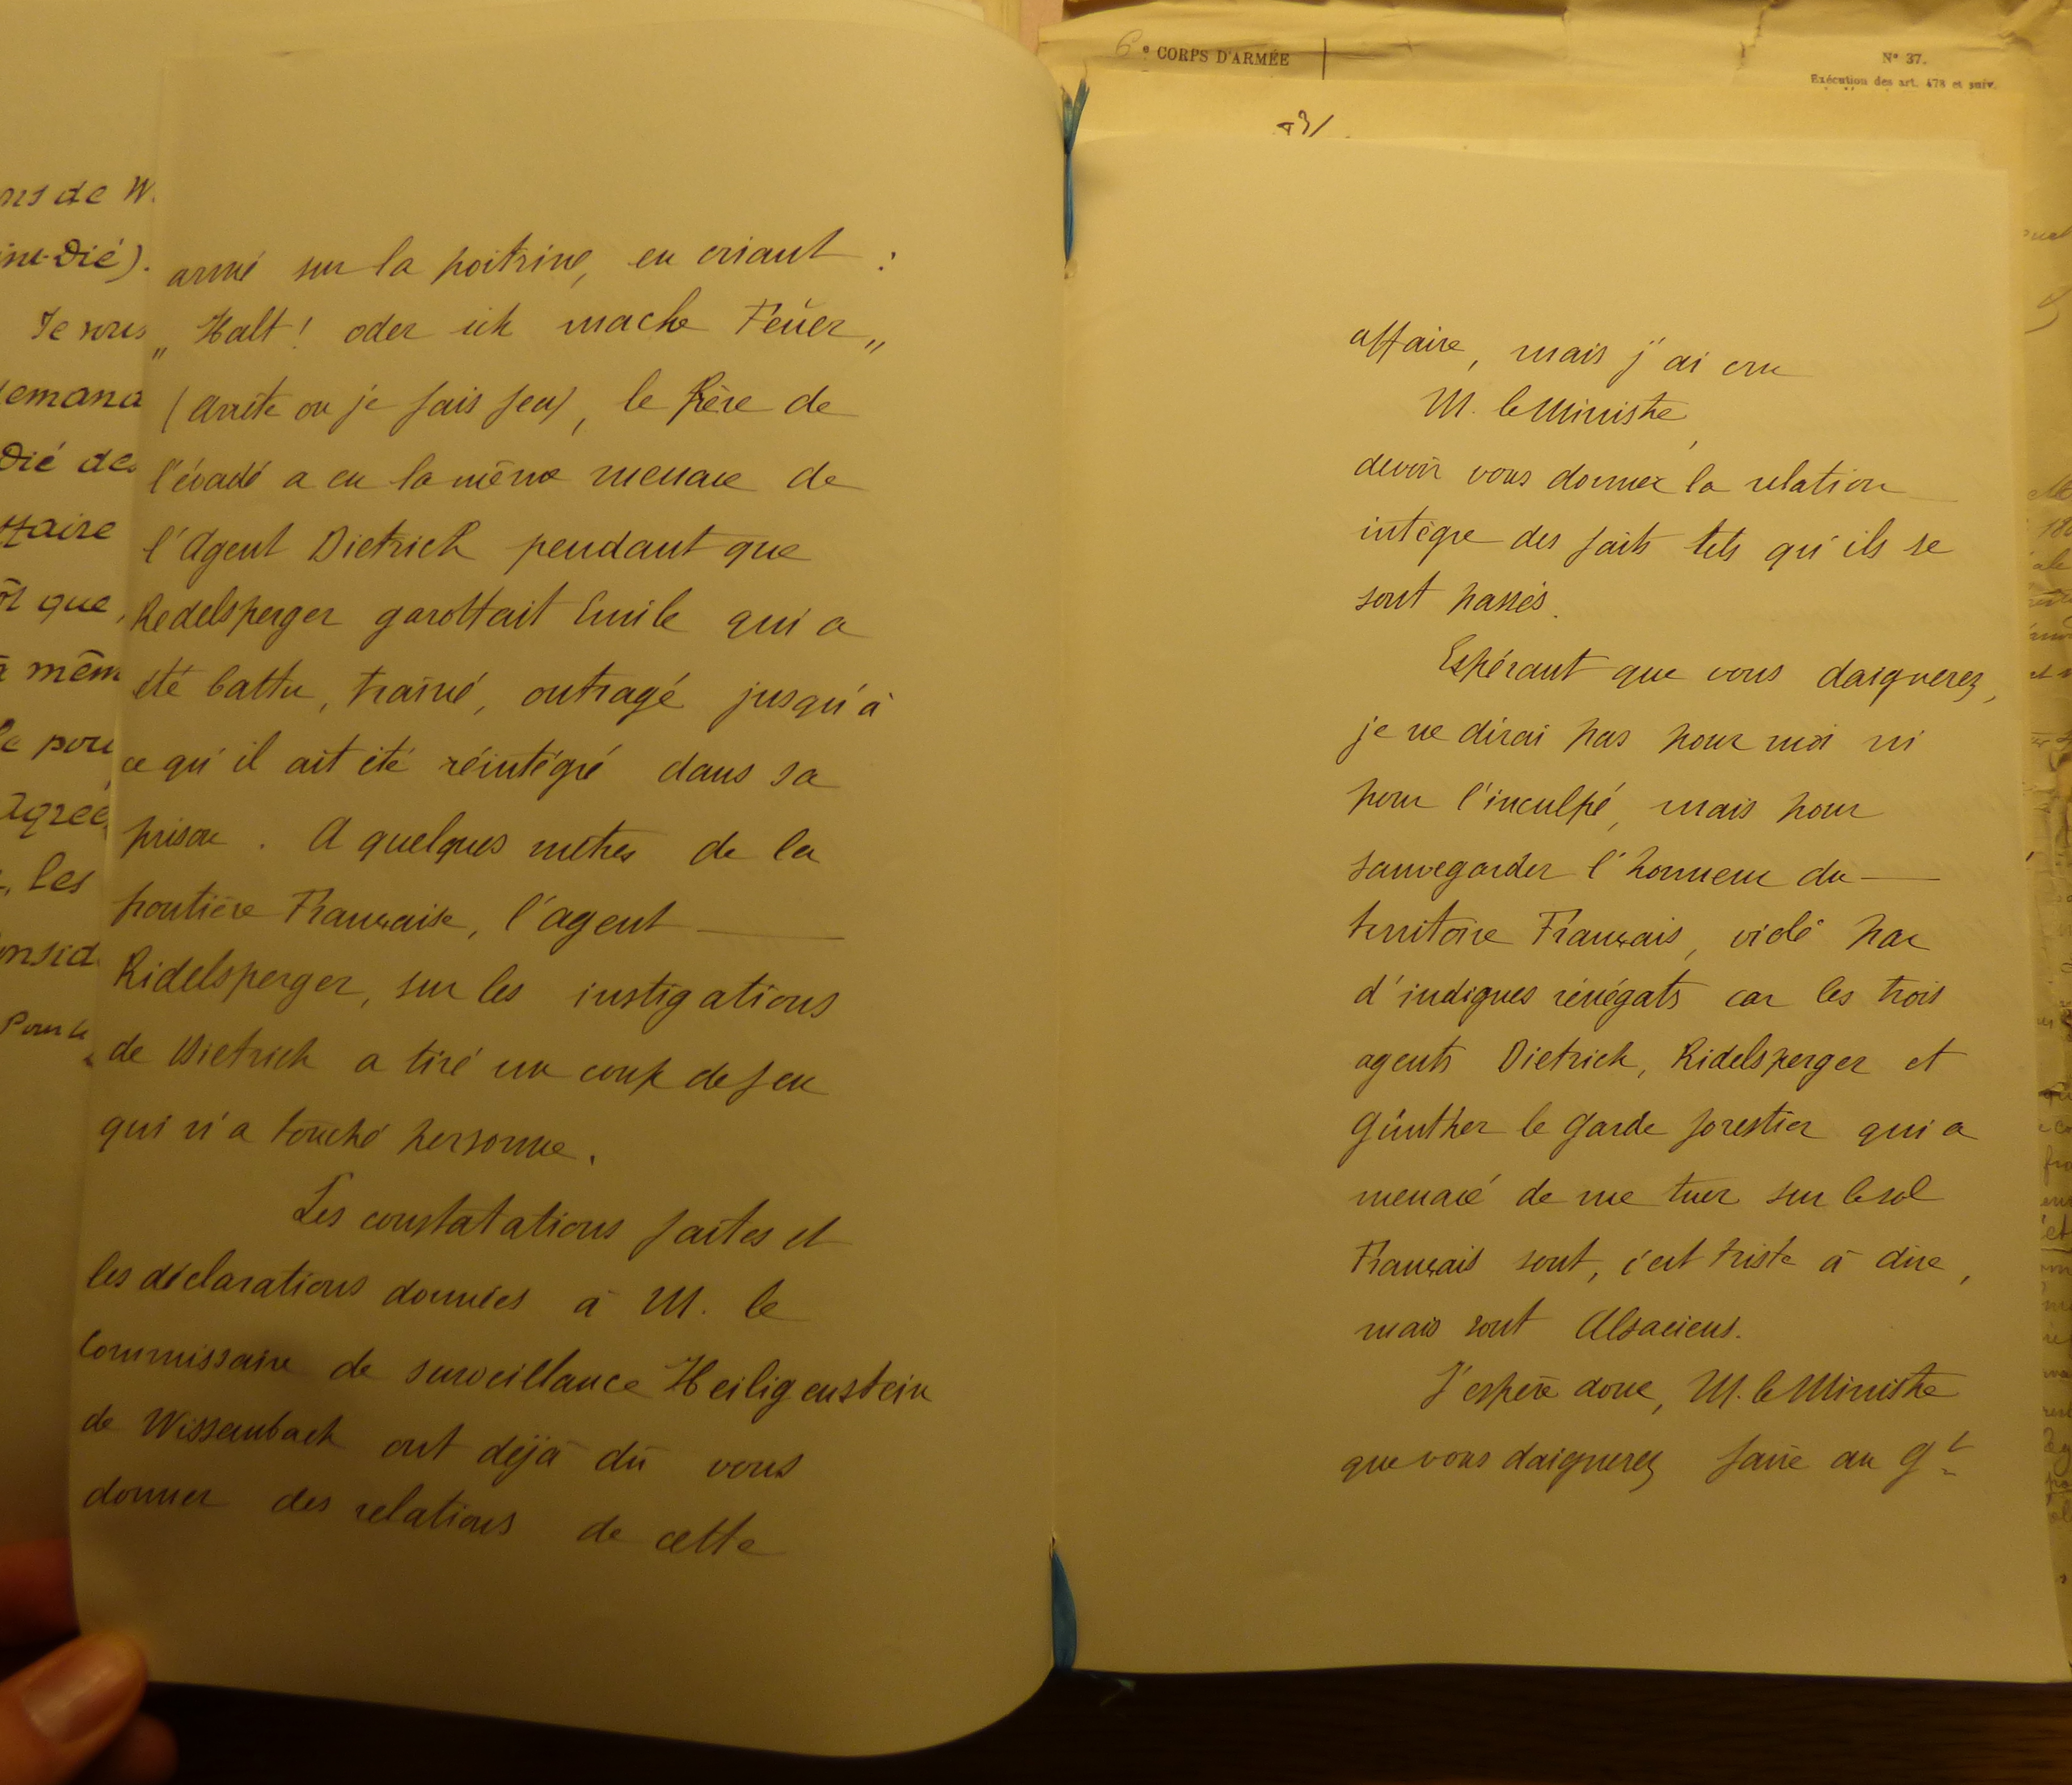 ons de W.
int-Dié).
Je vous
demand
Dié des
ffaire
ôt que,
à mêm
le pou
agrée
, les
onsid
Pour le
armé sur la poitrine, en criant :
„ Halt ! oder ich mache Feuer „
(arrête ou je fais feu), le frère de
l'évadé a eu la même menace de
l'Agent Dietrich pendant que
Redelsperger garottait Emile qui a
été battu, trainé, outragé jusqu'à
ce qu'il ait été réintégré dans sa
prison. A quelques mètres de la
frontière Française, l'agent
Ridelsperger, sur les instigations
de Dietrich a tiré un coup de feu
qui n'a touché personne.
Les constatations faites et
les déclarations données à M. le
Commissaire de surveillance Heiligenstein
de Wissembach ont déjà dû vous
donner des relations de cette
6e CORPS D'ARMÉE
N° 37.
Exécution des art. 478 et suiv.
affaire, mais j'ai cru
M. le Ministre,
devoir vous donner la relation
intègre des faits tels qu'ils se
sont passés.
Espérant que vous daignerez,
je ne dirai pas pour moi ni
pour l'inculpé, mais pour
sauvegarder l'honneur du
territoire Français, violé par
d'indignes rénégats car les trois
agents Dietrich, Ridelsperger et
Günther le garde forestier qui a
menacé de me tuer sur le sol
Français sont, c'est triste à dire,
mais sont Alsaciens.
J'espère donc, M. le Ministre
que vous daignerez faire au Gt